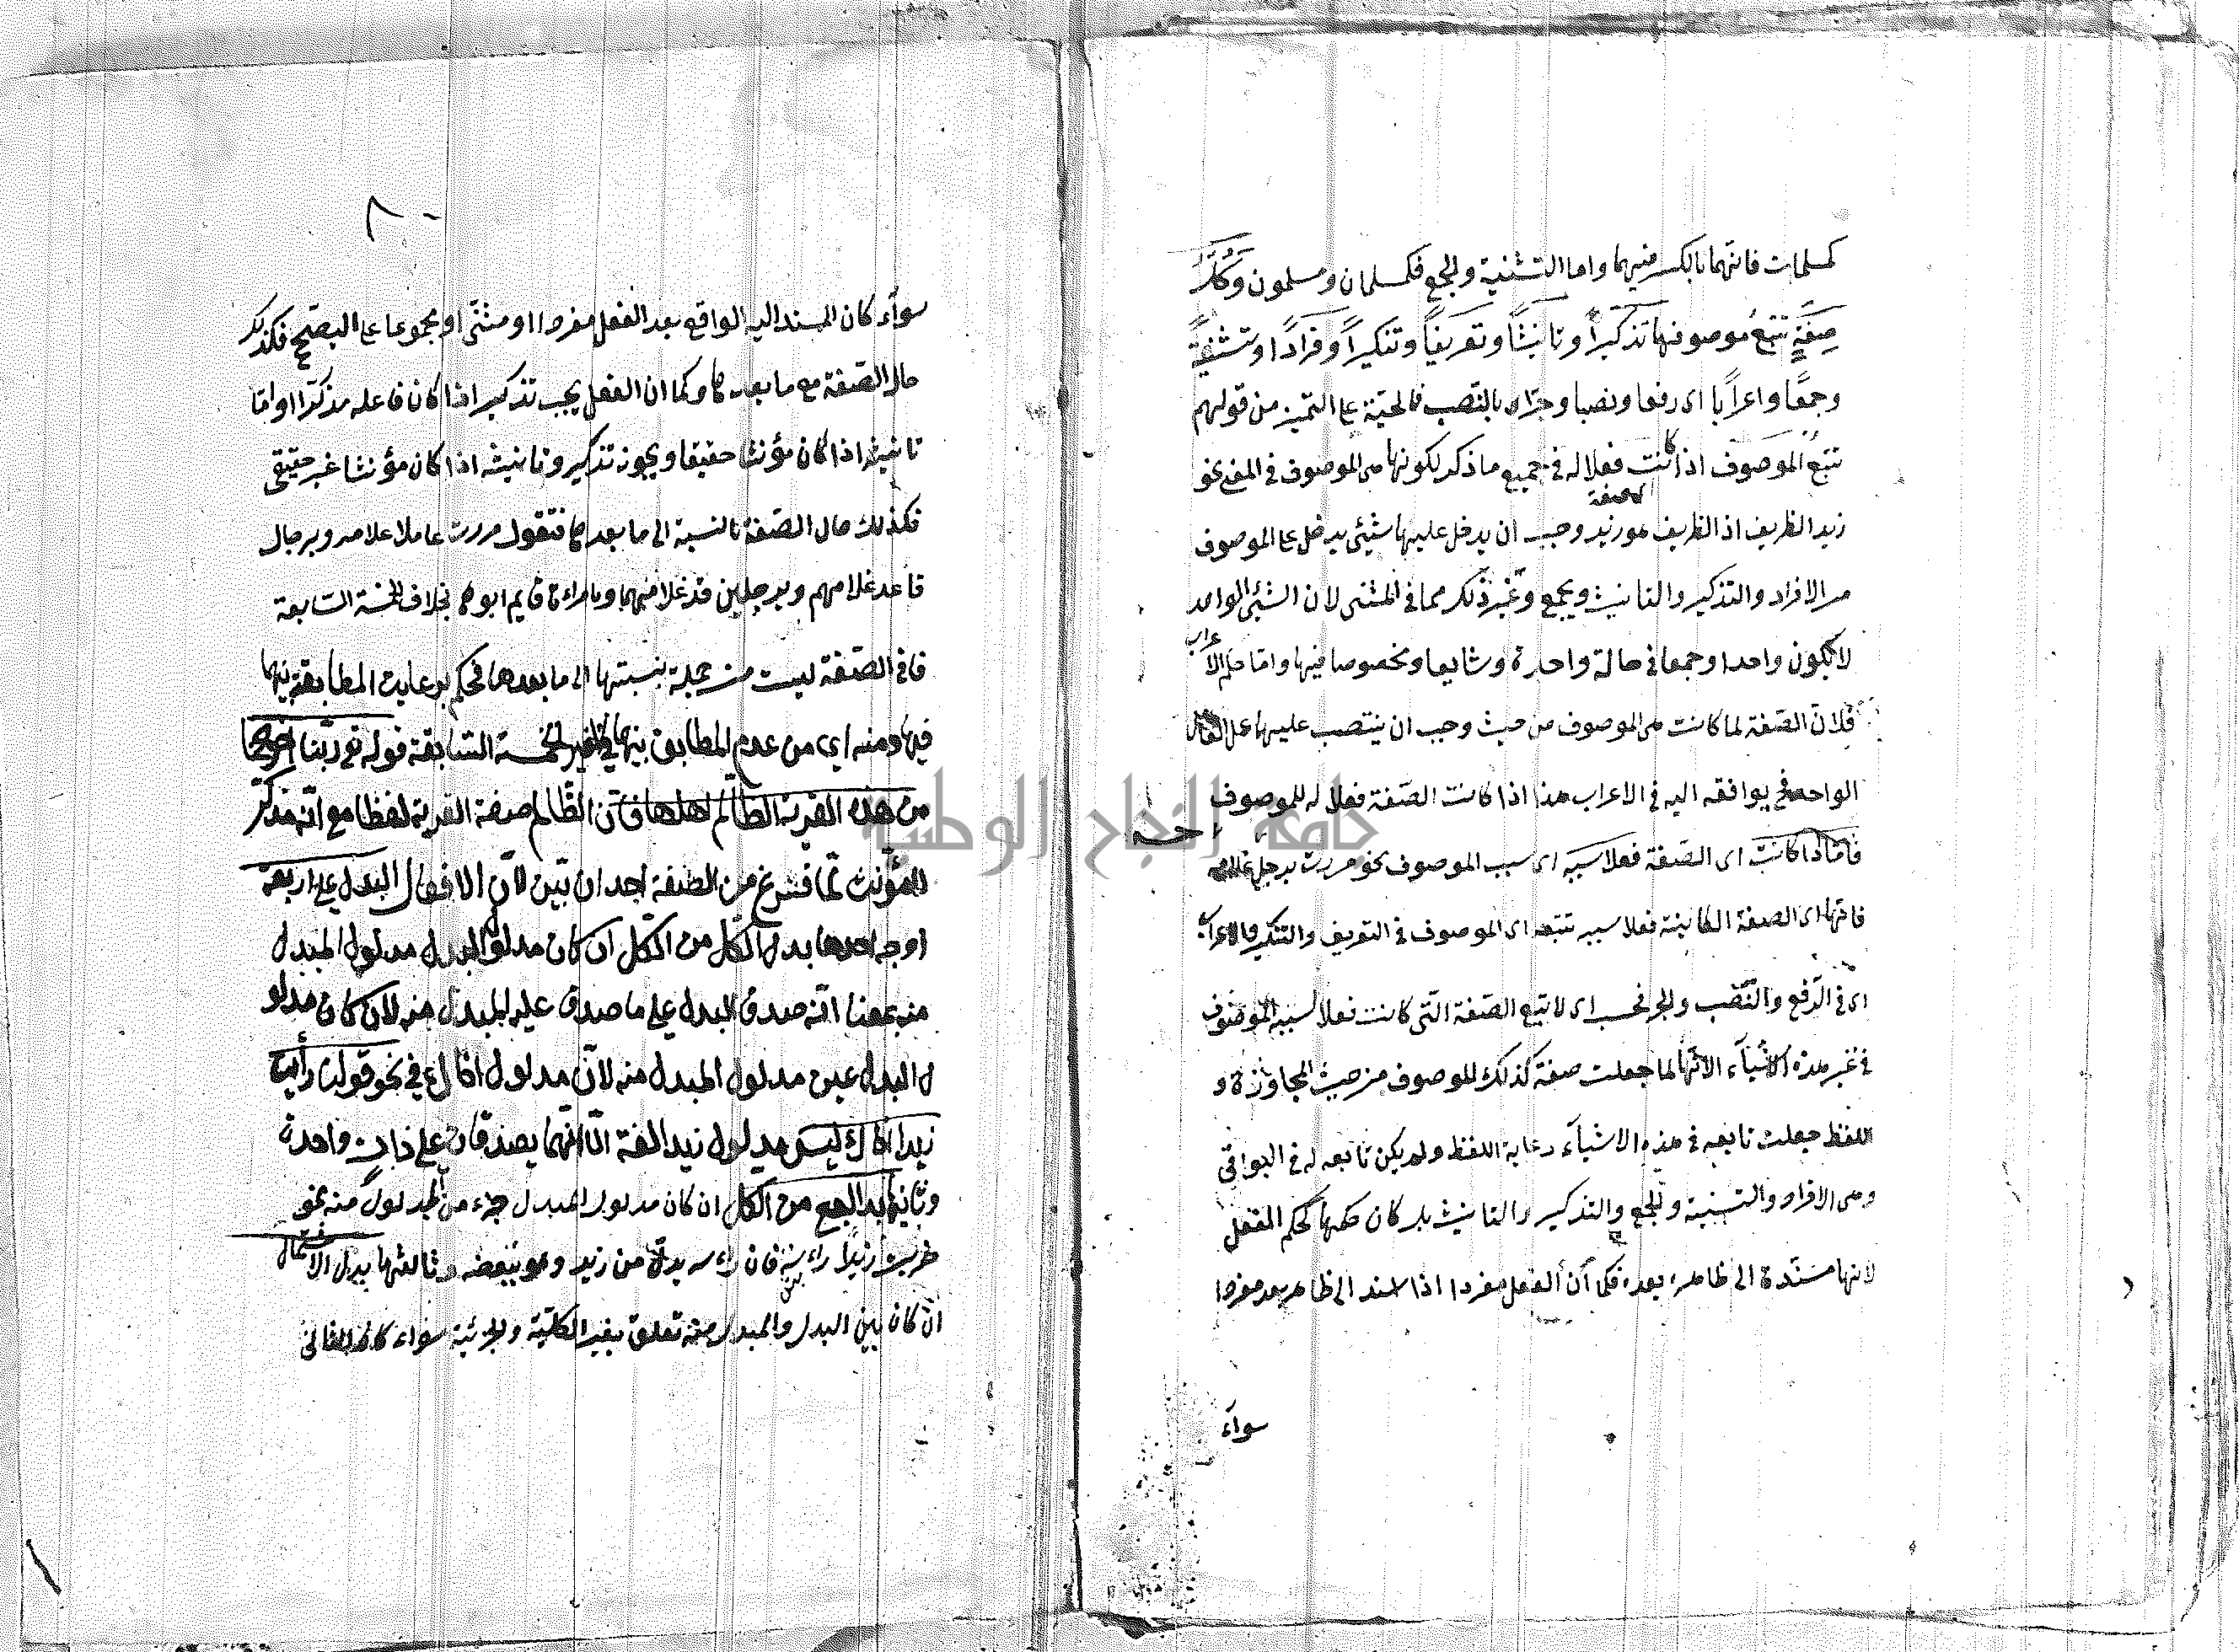 كمسلمات فانهما بالكسر فيهما واما التثنية والجمع فكمسلمان ومسلمون وكل
صفة تتبع موصوفها تذكيرا وتانيثا وتعريفا وتنكيرا وفرادا وتثنية
وجمعا واعرابا اى رفعا ونصبا وجرا بالنصب على التميز من قولهم
تتبع الموصوف اذا كانت فعلا له فى جميع ما ذكر لكونها هى الموصوف فى المعنى نحو
زيد الظريف اذ الظريف هو زيد وجب ان يدخل عليها شيئ يدخل على الموصوف
الصفة
من الافراد والتذكير والتانيث ويجمع وغير ذلك مما فى المثنى لان الشيئ الواحد
لا يكون واحدا وجمعا فى حالة واحدة وشايعا ومخصوصا فيها واما حكم الاعراب
فلان الصفة لما كانت هى الموصوف من حيث وجب ان ينتصب عليها عمل العامل
الواحد يوافقه اليه فى الاعراب هذا اذا كانت الصفة فعلا له للموصوف
فاما اذا كانت اى الصفة فعلا سببه اى سبب الموصوف نحو مررت برجل
فانها اى الصفة الكاينة فعلا سببه تتبعه اى الموصوف فى التعريف والتنكير والاعراب
اى فى الرفع والنصب والجر فحسب اى لا تتبع الصفة التى كانت فعلا لسببه الموصوف
فى غير هذه الاشيآء الا انها لما جعلت صفة كذلك للموصوف من حيث المجاوزة و
اللفظ جعلت تابعه فى هذه الاشيآء رعاية اللفظ ولم يكن تابعه له فى البواقى
وهى الافراد والتثنية والجمع والتذكير والتانيث بل كان حكمها كحكم الفعل
لانها مسندة الى ظاهر بعده فكما أن الفعل مفردا اذا اسند الى ظاهر بعد مفردا
سوآء
سوآء كان المسند اليه الواقع بعد الفعل مفردا او مثنى او مجموعا على الصحيح فكذلك
حال الصفة مع ما بعدها وكما ان الفعل يجب تذكيره اذا كان فاعله مذكرا او اما
تانيثه اذا كان مؤنثا حقيقا ويجوز تذكيره وتانيثه اذا كان مؤنثا غير حقيقى
فكذلك حال الصفة بالنسبة الى ما بعدها فتقول مررت وبرجال
قاعد غلامهم وبرجلين غلامهما وبامراءة قايم ابوها بخلاف الخمسة السابعة
فان الصفة ليست من جملة بنسبتها الى ما بعدها المطابقة بينهما
فيها ومنه اى من عدم المطابق بينهما فى غير الخمسة السابقة قوله تع ربنا اخرجنا
من هذه القرية الظالم اهلها فان الظالم صفة القرية لفظا مع انه مذكر
للمؤنث لما فرغ من الصفة اخد ان بين لان الافعال البدل على اربعة
اوجه احدها بدل الكل من الكل ان كان مدلول البدل مدلول المبدل
منه بمعنا انه صدق البدل على ما صدق عليه المبدل منه لان كان مدلو
ل البدل عين مدلول المبدل منه لان مدلول اخاك فى نحو قولك رأيت
زيدا اخاك ليس مدلول زيد الغة الا انهما يصدقان على ذات واحدة
وثانيها بدل البعض من الكل ان كان مدلول البدل جزء من المدلول منه نحو
ضربت زيدا راءسه فان راءسه بدل من زيد وهو بعضه وثالثها بدل الاشتمال
ان كان بين البدل والمبدل منه تعلق بغير الكلية والجزئية سواء كان
جامعة النجاح الوطنية